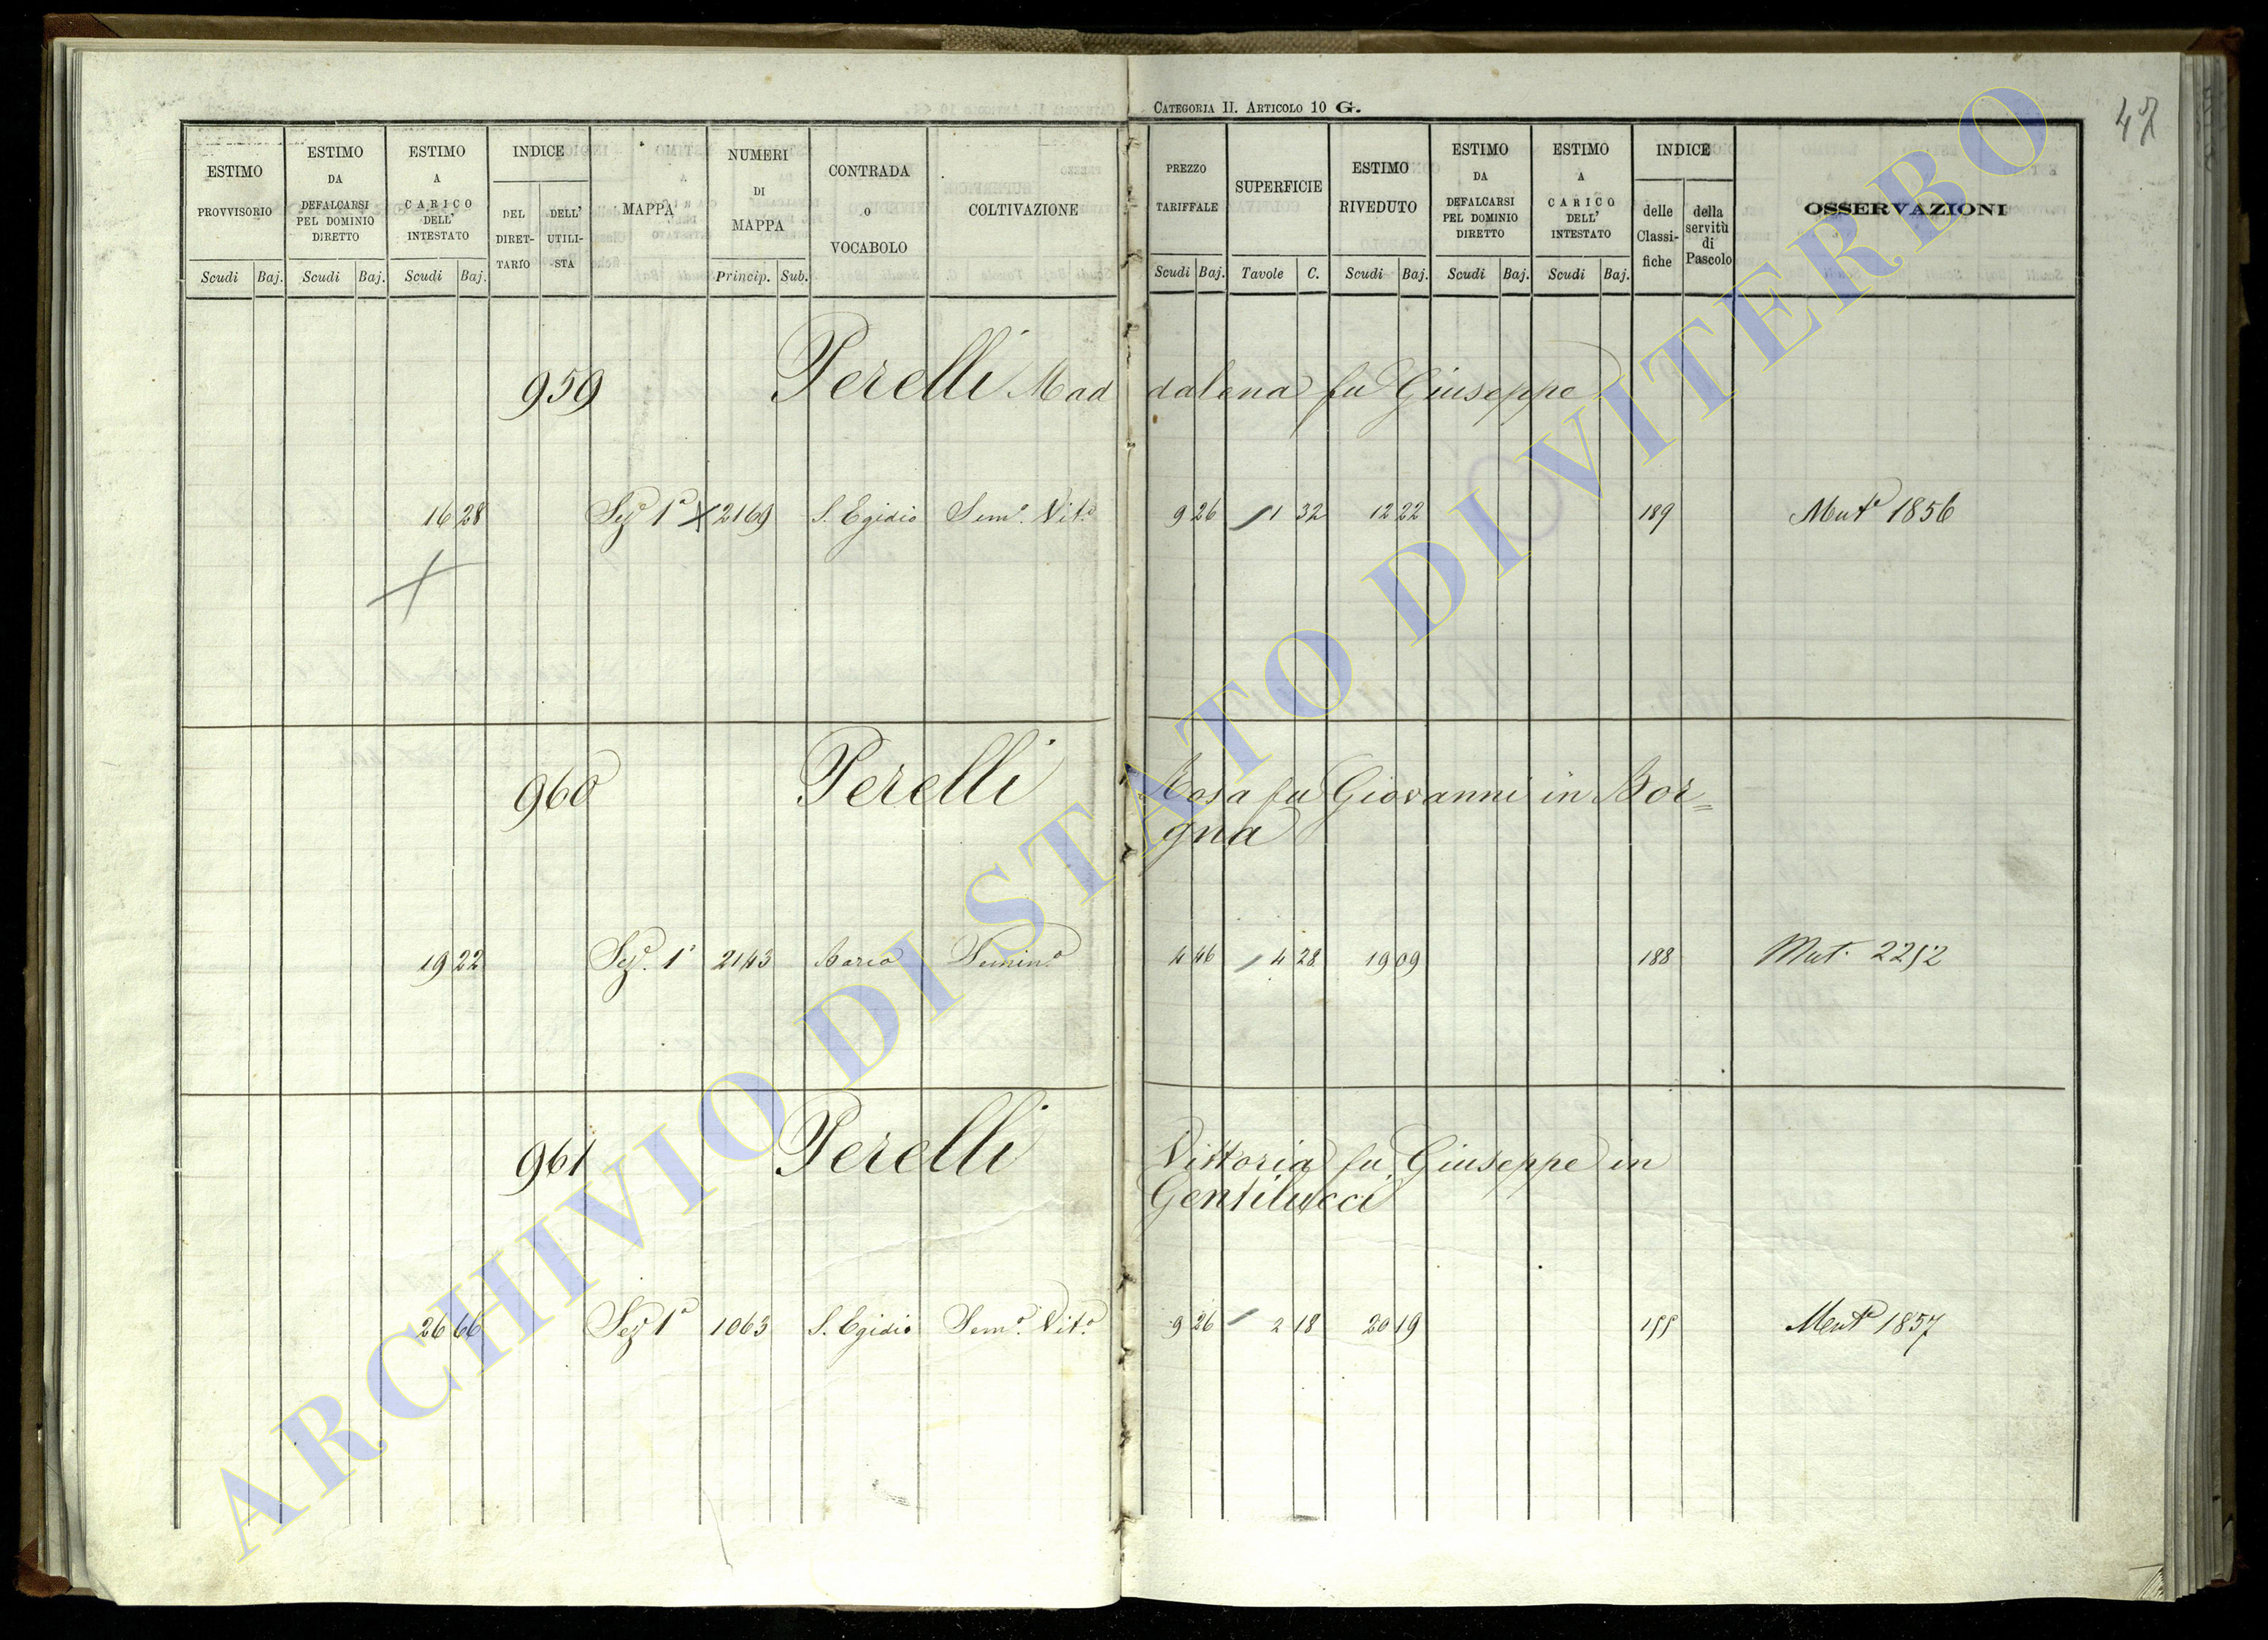 CATEGORIA II. ARTICOLO 10 G.
47
ESTIMO PROVVISORIO
ESTIMO DA DEFALCARSI PEL DOMINIO DIRETTO
ESTIMO A CARICO DELL' INTESTATO
INDICE
DEL DIRET- TARIO
DELL' UTILI- STA
MAPPA
NUMERI DI MAPPA
CONTRADA O VOCABOLO
COLTIVAZIONE
PREZZO TARIFFALE
SUPERFICIE
ESTIMO RIVEDUTO
ESTIMO DA DEFALCARSI PEL DOMINIO DIRETTO
ESTIMO A CARICO DELL' INTESTATO
INDICE
delle Classi- fiche
della servitù di Pascolo
OSSERVAZIONI
Scudi Baj. Scudi Baj. Scudi Baj. Princip. Sub. Scudi Baj. Tavole C. Scudi Baj. Scudi Baj. Scudi Baj.
959 Perelli Mad dalena fu Giuseppe
16 28 Sezᵉ 1ª X 2169 S. Egidio Semᵒ. Vitᵒ 9 26 / 1 32 12 22 189 Mutª 1856
X
960 Perelli Rosa fu Giovanni in Bor=
gna
19 22 Sezᵉ. 1ª 2143 Bario Seminᵒ 4 46 / 4 28 19 09 188 Mut. 2252
961 Perelli Vittoria fu Giuseppe in
Gentilucci
26 66 Sezᵉ 1ª 1063 S. Egidio Semᵒ. Vitᵒ 9 26 / 2 18 20 19 155 Mutª 1857
ARCHIVIO DI STATO DI VITERBO